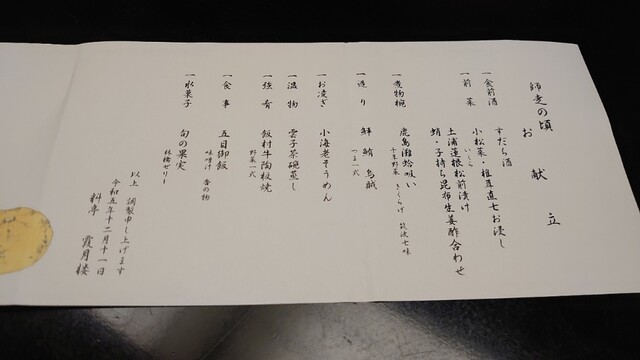 師走の頃
お献立
一食前酒 すだち酒
一前菜 小松菜・椎茸直七お浸し
いくら
土浦蓮根松前漬け
蛸・子持ち昆布生姜酢合わせ
一煮物椀 鹿島灘蛤吸い
千条野菜 きくらげ 筑波七味
一造り 鮮鮪 烏賊
つま一式
一お凌ぎ 小海老そうめん
一温物 雲子茶碗蒸し
一強肴 飯村牛陶板焼
野菜一式
一食事 五目御飯
味噌汁 香の物
一水菓子 旬の果実
ゼリー
以上 調製申し上げます
令和五年十二月十一日
料亭 霞月楼